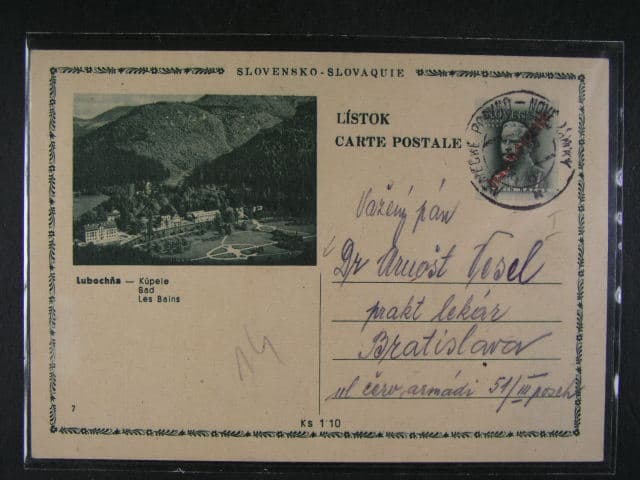 SLOVENSKO-SLOVAQUIE
LÍSTOK
CARTE POSTALE
NOVÉ ZÁMKY
Vážený pán
Dr Arnošt Vesel
prakt lekár
Bratislava
ul červ. armádi 51/III posch
Lubochňa — Kúpele
Bad
Les Bains
14
7
Ks 1·10
I